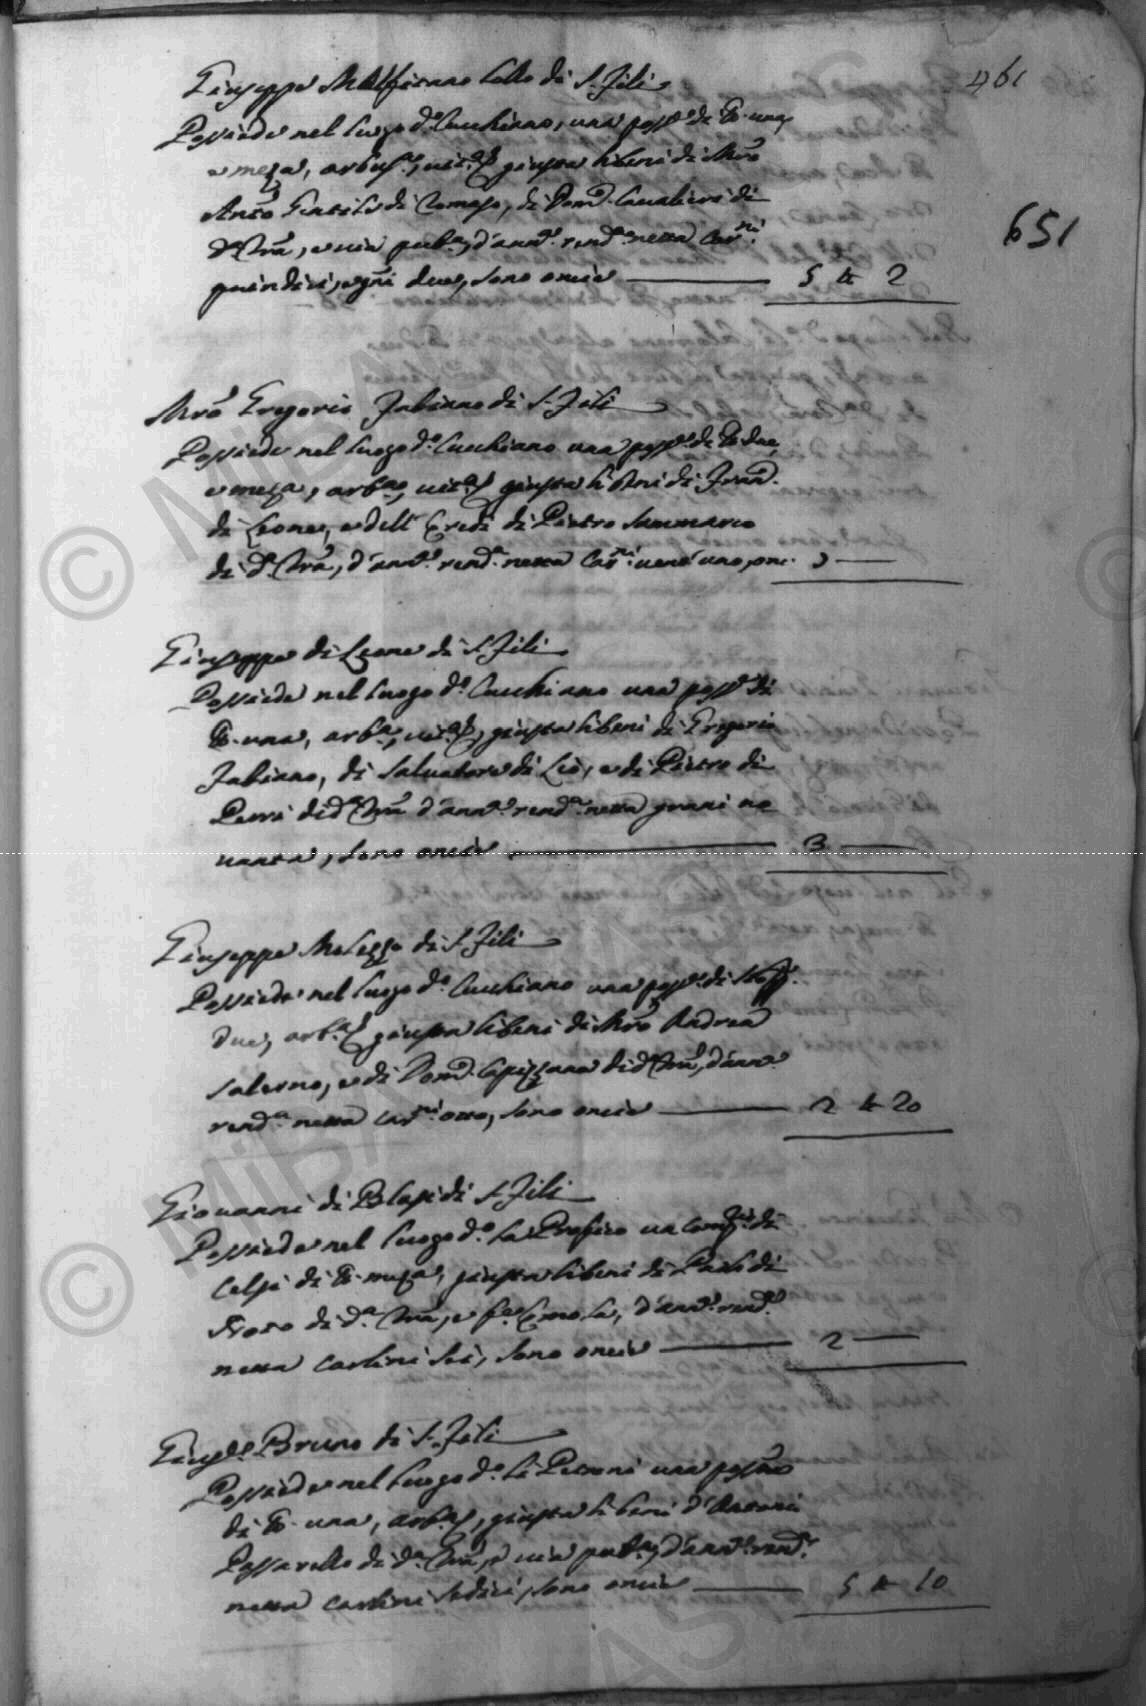 461
651
Giuseppe Malfitano Lollo di S. Fili
Possiede nel luogo d.º Cucchiano, una poss.e di tt.a una,
e meza, arbus.a, vit.a giusta li beni di Mro
Anto Gentile di Tomaso, di Dom.co Cavalieri di
d.a Trã, e via pub.a, d'ann.l rend.a netta Car.ni
quindici, e grni due, sono oncie 5 tt 2
Mro Gregorio Fabiano di S. Fili
Possiede nel luogo d.º Cucchiano una poss.e di tt.a due,
e meza, arb.a, vit.a giusta li beni di Fran.
di Leone, e dell' Eredi di Pietro Sammarco
di d.a Trã, d'ann.l rend.a netta Car.ni vent'uno, onc.
Giuseppe di Leone di S. Fili
Possiede nel luogo d.º Cucchiano una poss.e di
tt.a una, arb.a, vit.a, giusta li beni di Gregorio
Fabiano, di Salvatore di Lio, e di Pietro di
Perri di d.a Trã d'ann.l rend.a netta grani no
vanta, sono oncie 3
Giuseppe Melezzo di S. Fili
Possiede nel luogo d.º Cucchiano una poss.e di stop.
due, arb.a giusta li beni di Mro Andrea
Salerno, e di Dom.co Capizzano di d.a Trã, d'ann.
rend.a netta Car.ni otto, sono oncie 2 tt 20
Giovanni di Blasi di S. Fili
Possiede nel luogo d.º la Profico un di
Celsi di tt.a meza, giusta li beni di Paolo di
di d.a Trã, e d'ann.l rend.a
netta Carlini sei, sono oncie 2
Bruno di S. Fili
Possiede nel luogo d.º li Petroni una poss.ne
di tt.a una, arb.a, giusta li beni d'Antoni
Passarello di d.a Trã, e via pub.a, d'ann.l rend.a
netta Carlini sedici, sono oncie 5 tt 10
© MiBAC
© MiBAC